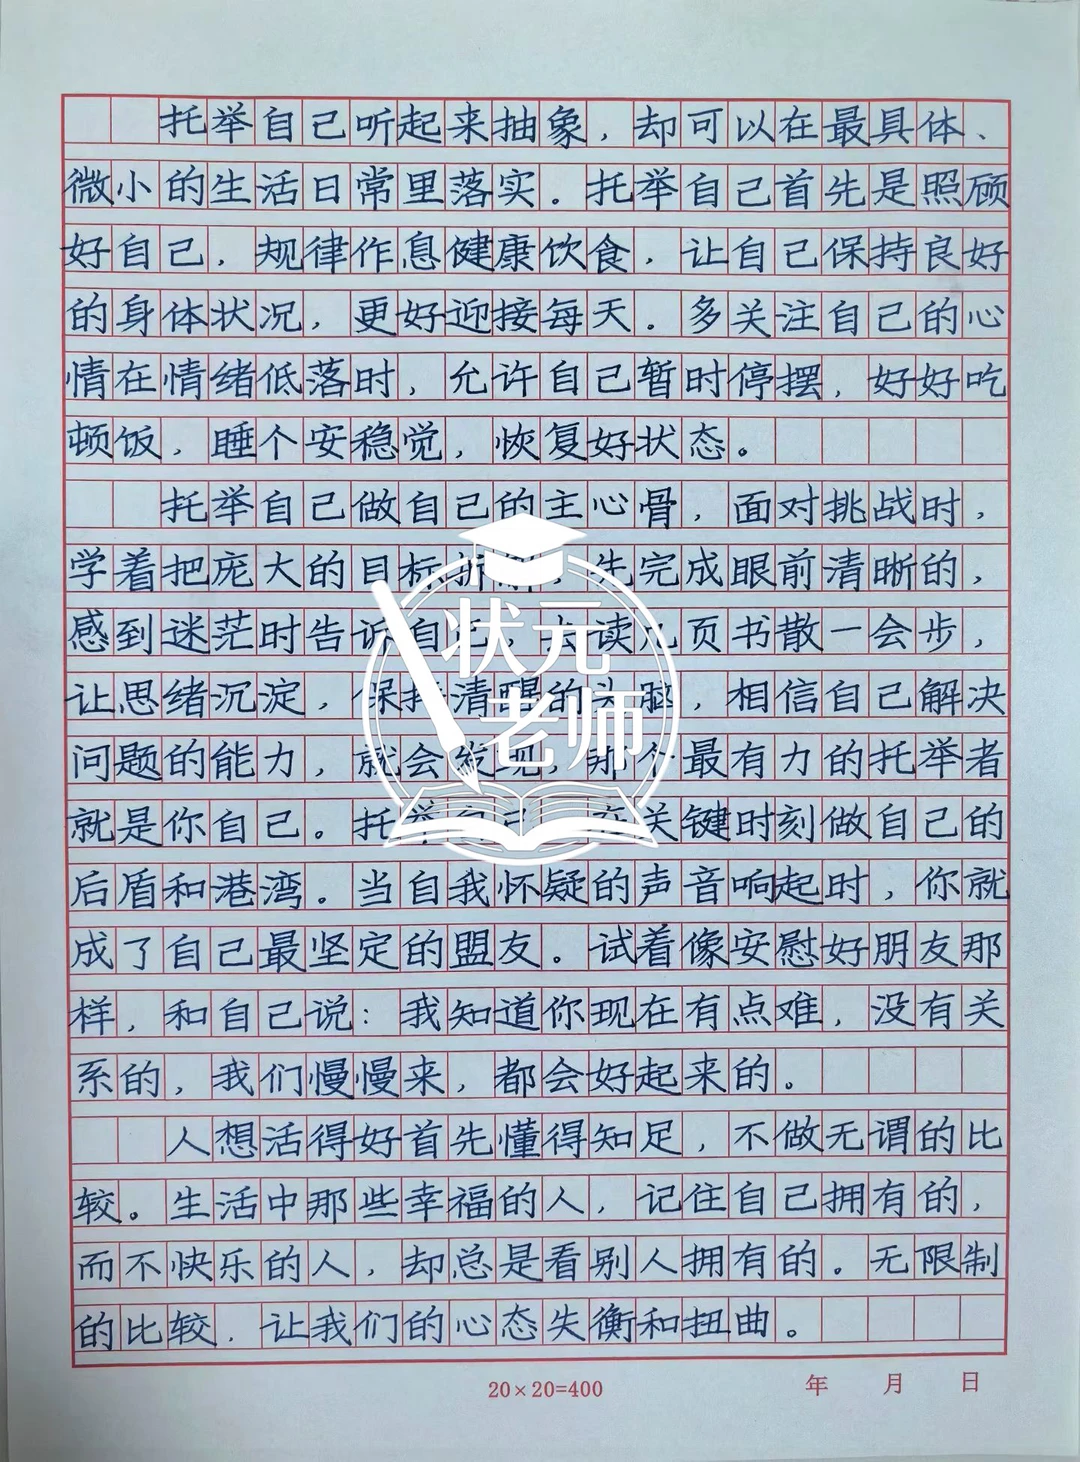 托举自己听起来抽象，却可以在最具体、
微小的生活日常里落实。托举自己首先是照顾
好自己，规律作息健康饮食，让自己保持良好
的身体状况，更好迎接每天。多关注自己的心
情在情绪低落时，允许自己暂时停摆，好好吃
顿饭，睡个安稳觉，恢复好状态。
托举自己做自己的主心骨，面对挑战时，
学着把庞大的目标拆解，先完成眼前清晰的，
感到迷茫时告诉自己，去读几页书散一会步，
让思绪沉淀，保持清醒的头脑，相信自己解决
问题的能力，就会发现，那个最有力的托举者
就是你自己。托举自己，在关键时刻做自己的
后盾和港湾。当自我怀疑的声音响起时，你就
成了自己最坚定的盟友。试着像安慰好朋友那
样，和自己说：我知道你现在有点难，没有关
系的，我们慢慢来，都会好起来的。
人想活得好首先懂得知足，不做无谓的比
较。生活中那些幸福的人，记住自己拥有的，
而不快乐的人，却总是看别人拥有的。无限制
的比较，让我们的心态失衡和扭曲。
状元
老师
20×20=400 年 月 日